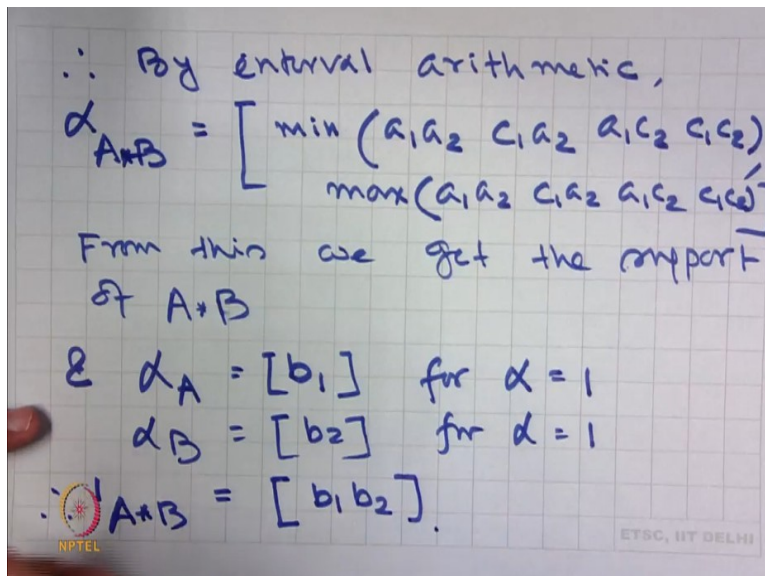 ∴ By interval arithmetic,
α A*B = [ min (a₁a₂ c₁a₂ a₁c₂ c₁c₂),
max (a₁a₂ c₁a₂ a₁c₂ c₁c₂) ]
From this we get the support
of A*B
& α A = [b₁] for α = 1
α B = [b₂] for α = 1
∴ 1 A*B = [b₁b₂].
NPTEL
ETSC, IIT DELHI